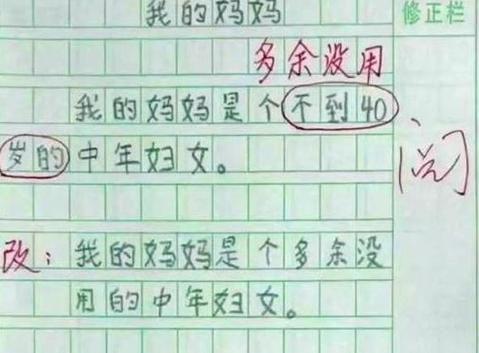 我的妈妈
修正栏
多余没用
我的妈妈是个不到40
岁的中年妇女。
阅
改：我的妈妈是个多余没
用的中年妇女。